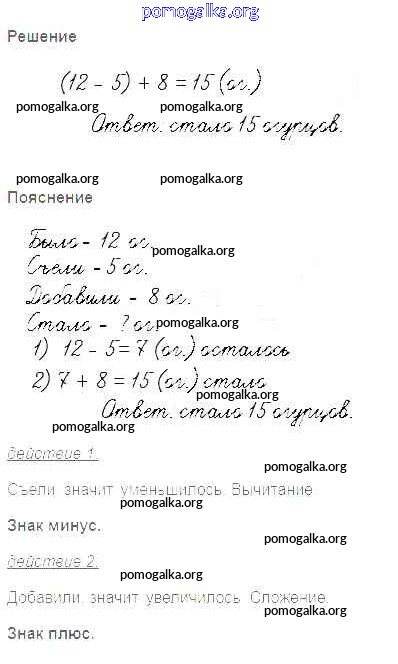 pomogalka.org
Решение
(12 - 5) + 8 = 15 (ог.)
pomogalka.org pomogalka.org
Ответ. стало 15 огурцов.
pomogalka.org pomogalka.org
Пояснение
Было - 12 ог.
pomogalka.org
Съели - 5 ог.
Добавили - 8 ог.
Стало - ? ог.
pomogalka.org
1) 12 - 5 = 7 (ог.) осталось
2) 7 + 8 = 15 (ог.) стало
pomogalka.org
Ответ. стало 15 огурцов.
pomogalka.org
действие 1.
pomogalka.org
Съели, значит уменьшилось. Вычитание
pomogalka.org
Знак минус.
pomogalka.org
действие 2.
pomogalka.org
Добавили, значит увеличилось. Сложение.
pomogalka.org
Знак плюс.